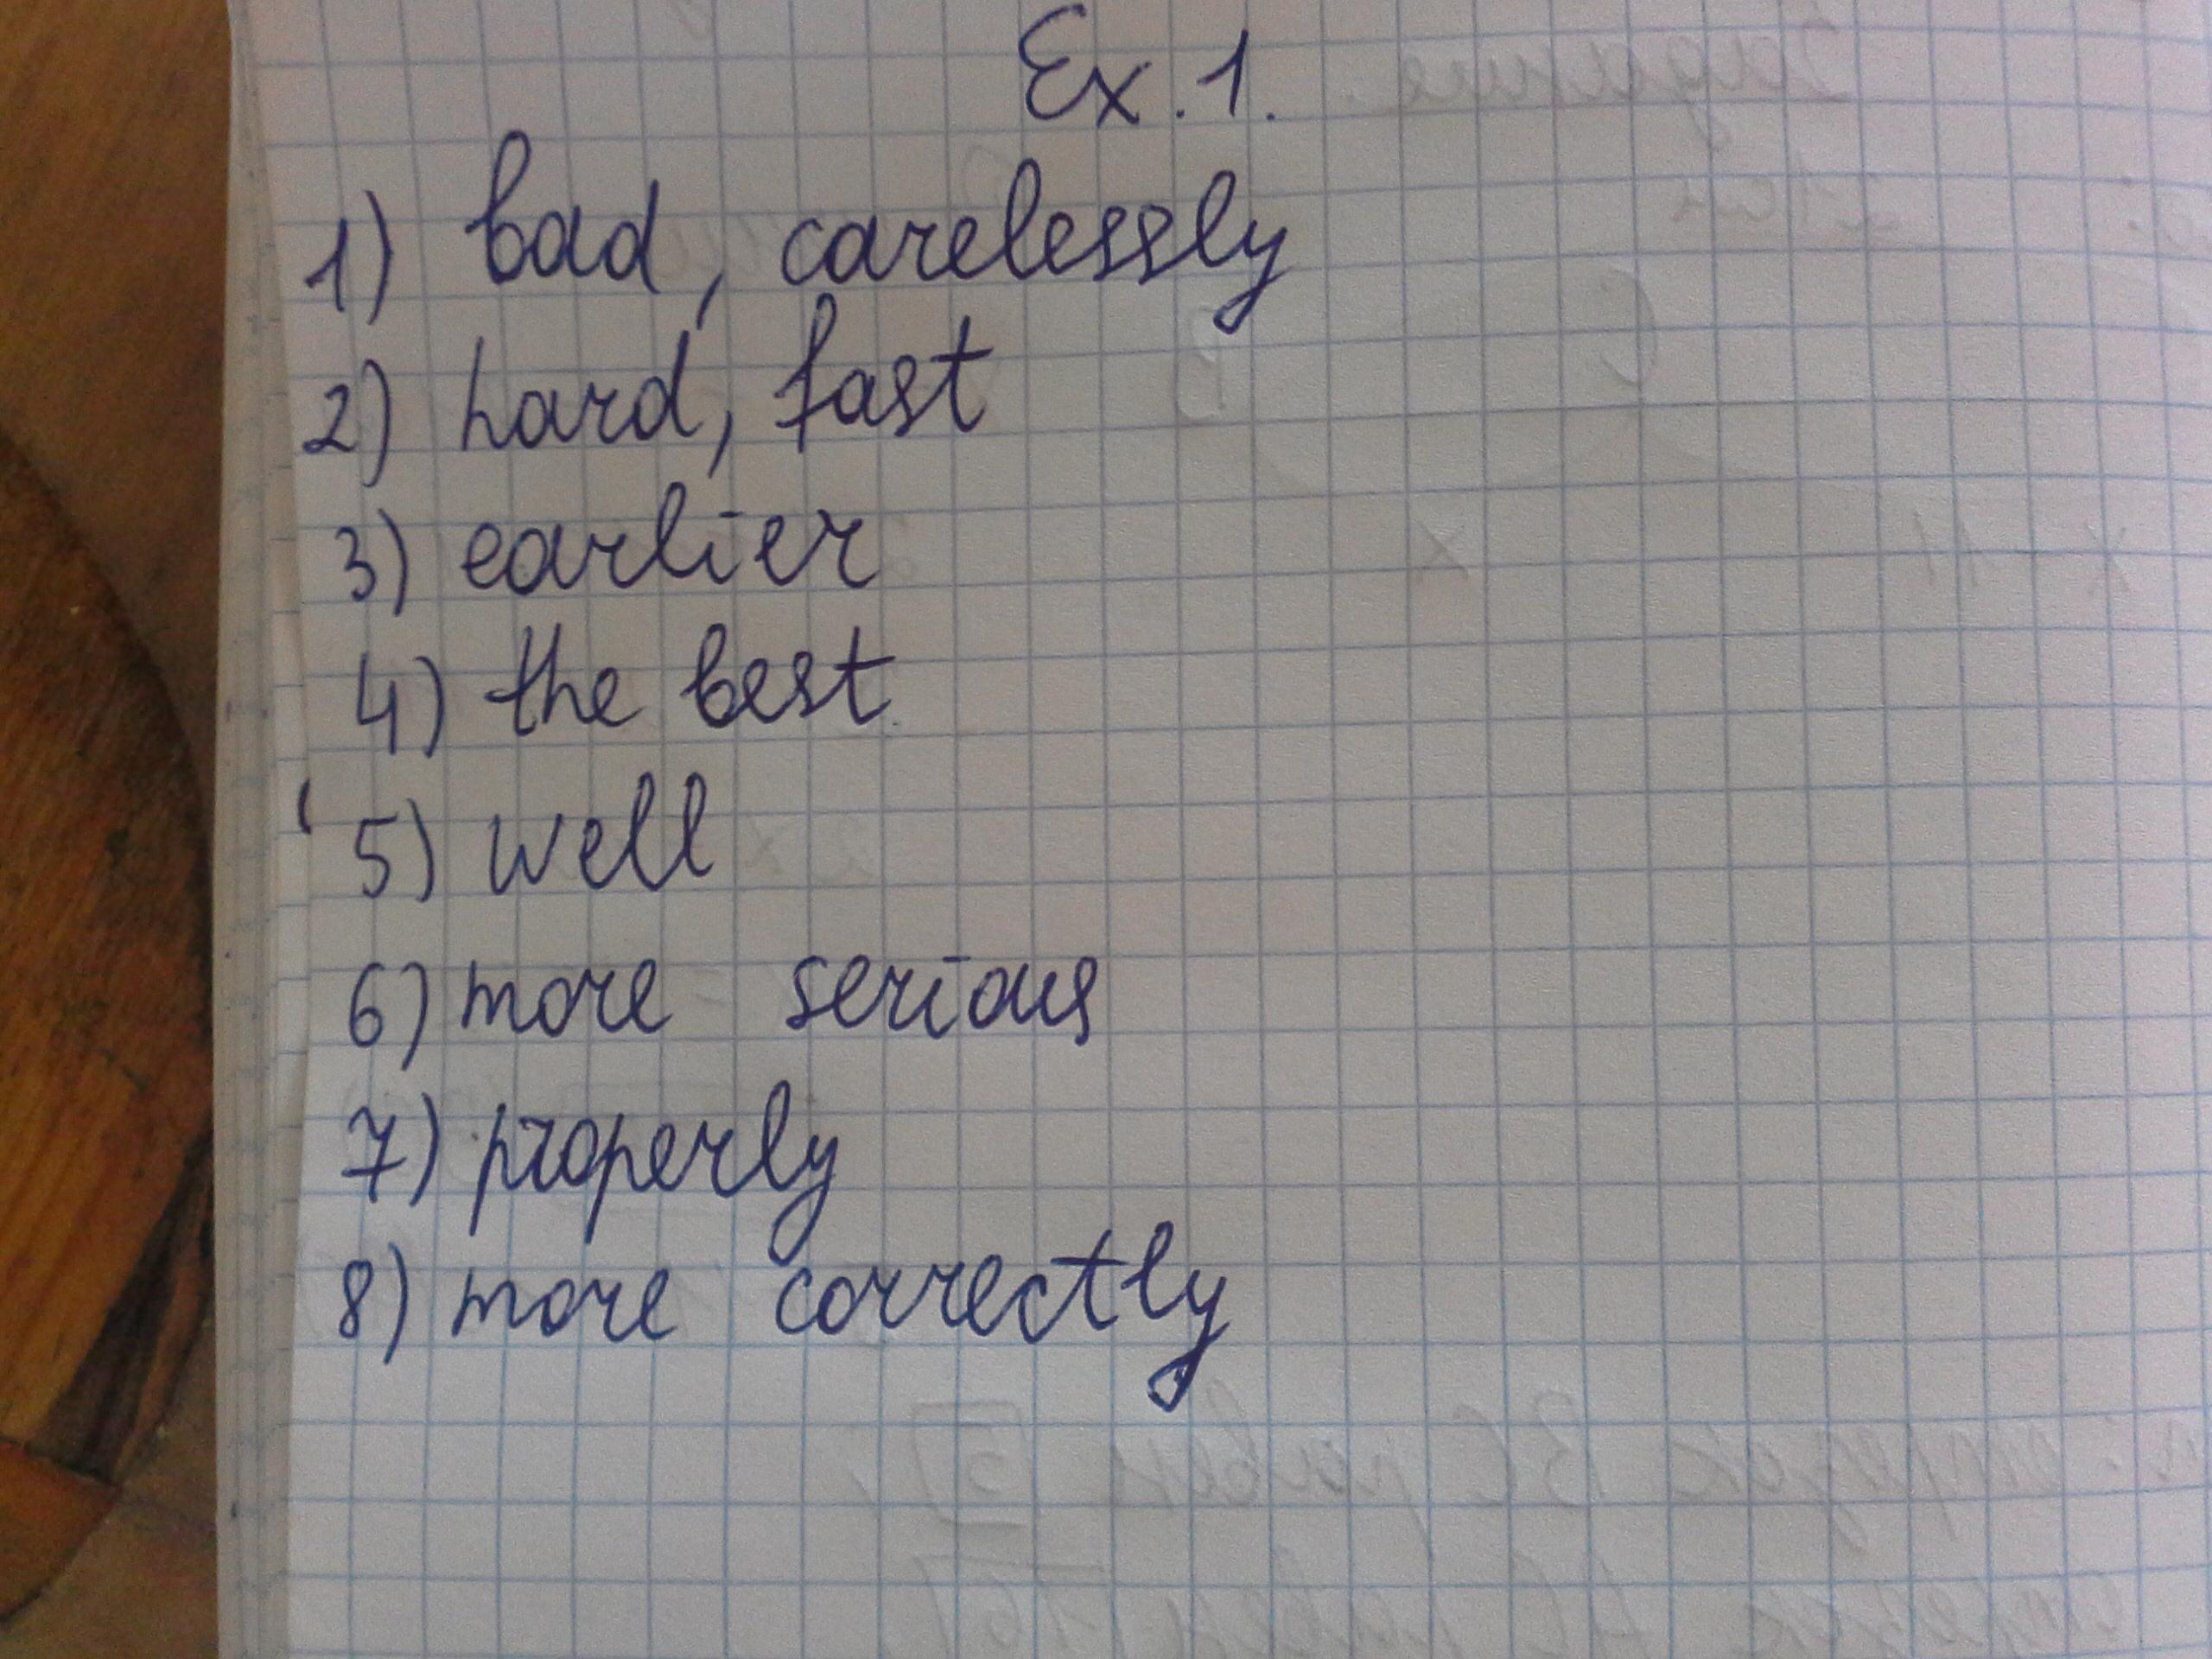 Ex. 1.
1) bad, carelessly
2) hard, fast
3) earlier
4) the best
5) well
6) more serious
7) properly
8) more correctly